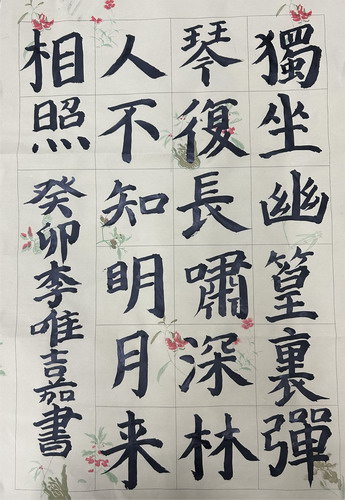 獨坐幽篁裏彈
琴復長嘯深林
人不知明月来
相照
癸卯李唯吉茄書